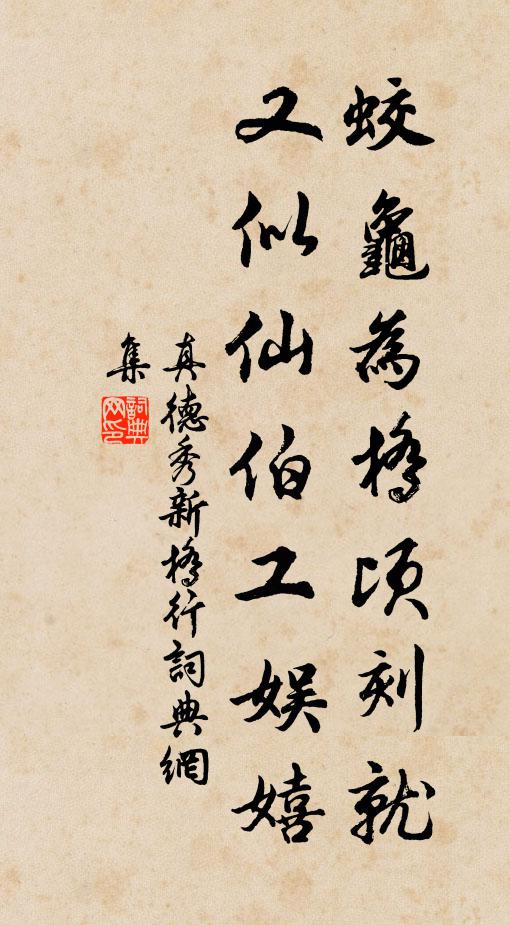 蛟龜為橋頃刻就
又似仙伯工娛嬉
真德秀新橋行詞典網
集
詞典网印